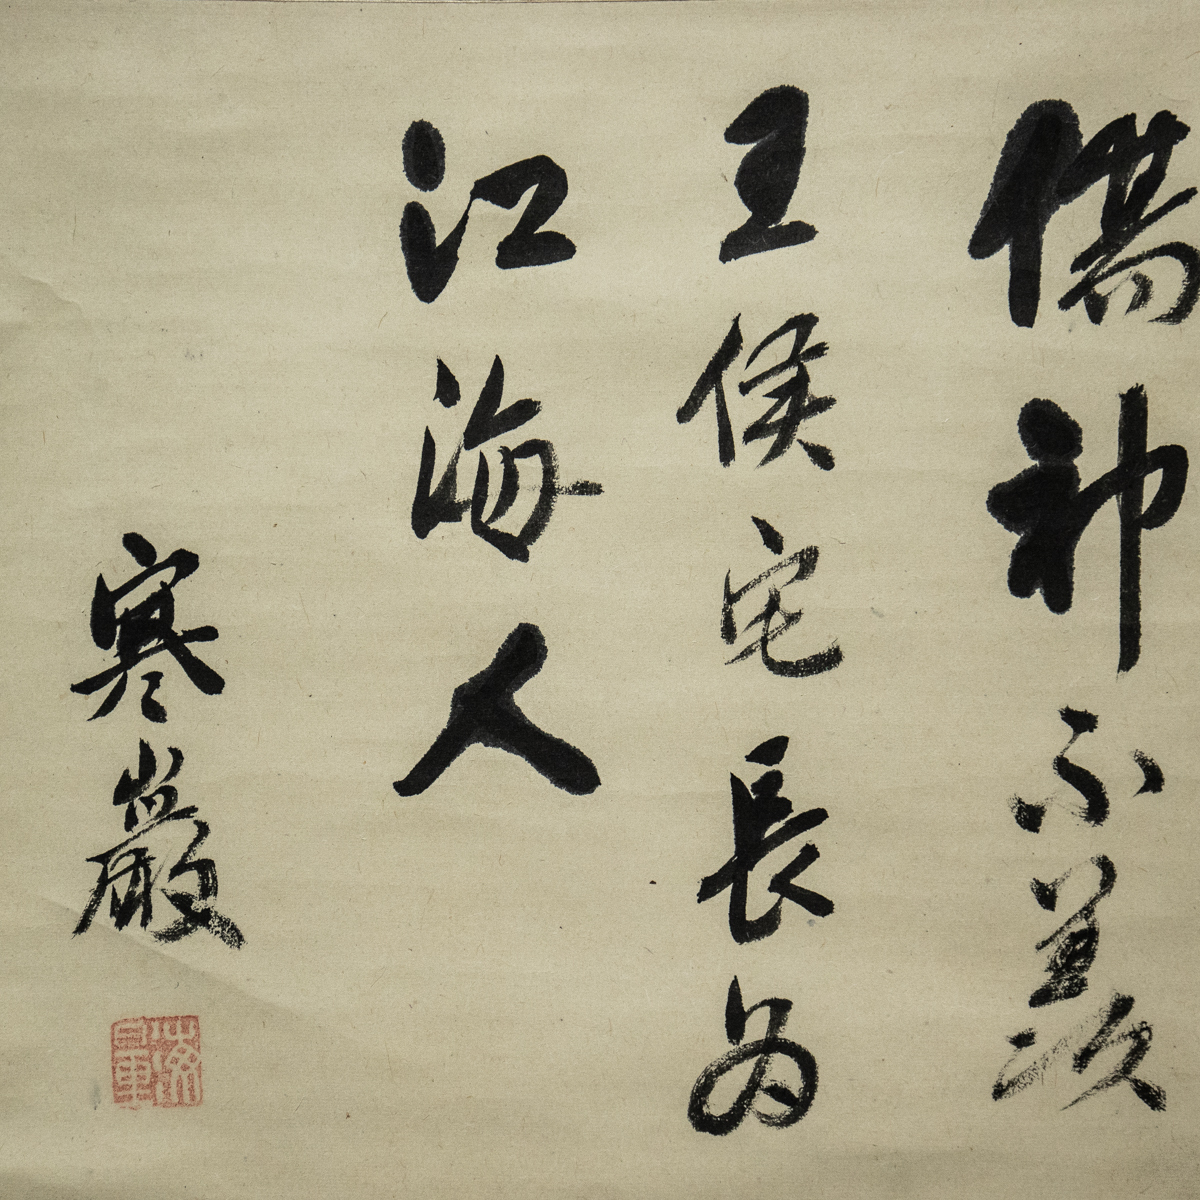 傷神不羨
王侯宅長為
江海人
寒巖